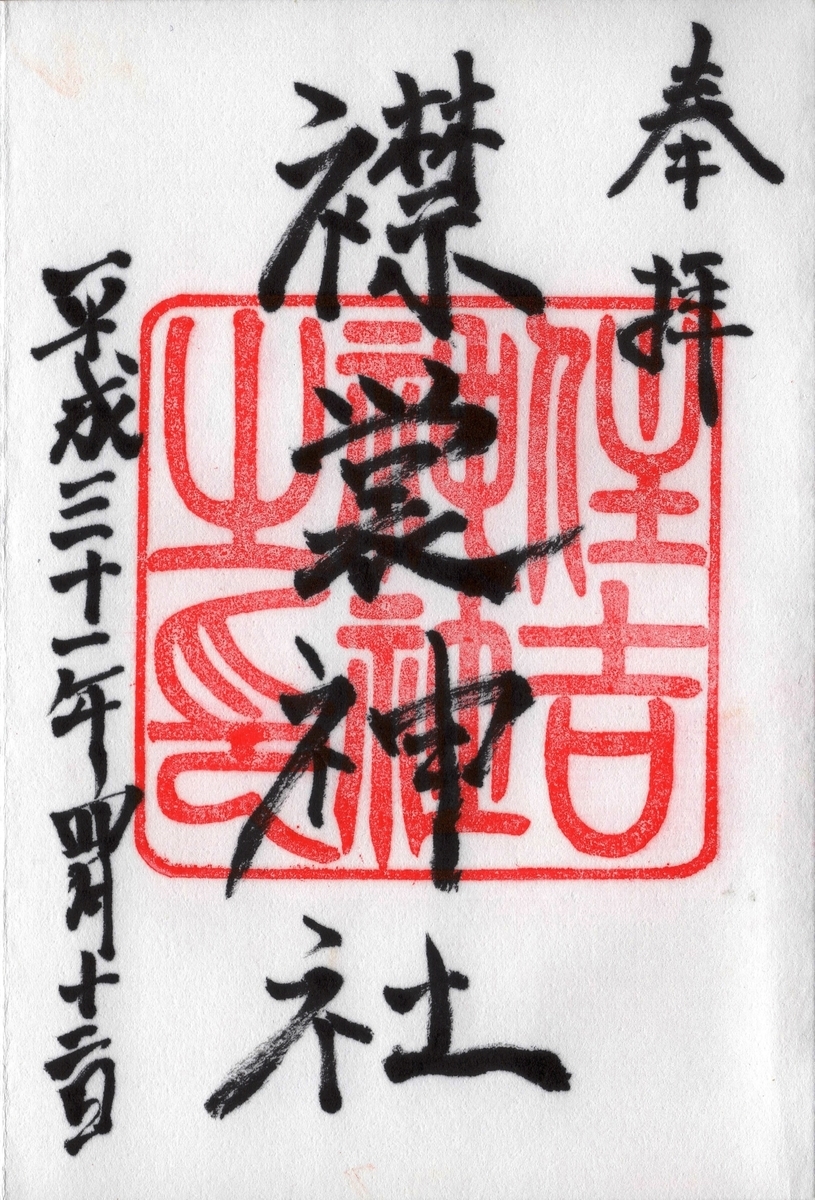 奉拝
襟裳神社
平成三十一年四月十二日
住吉
神社
之印